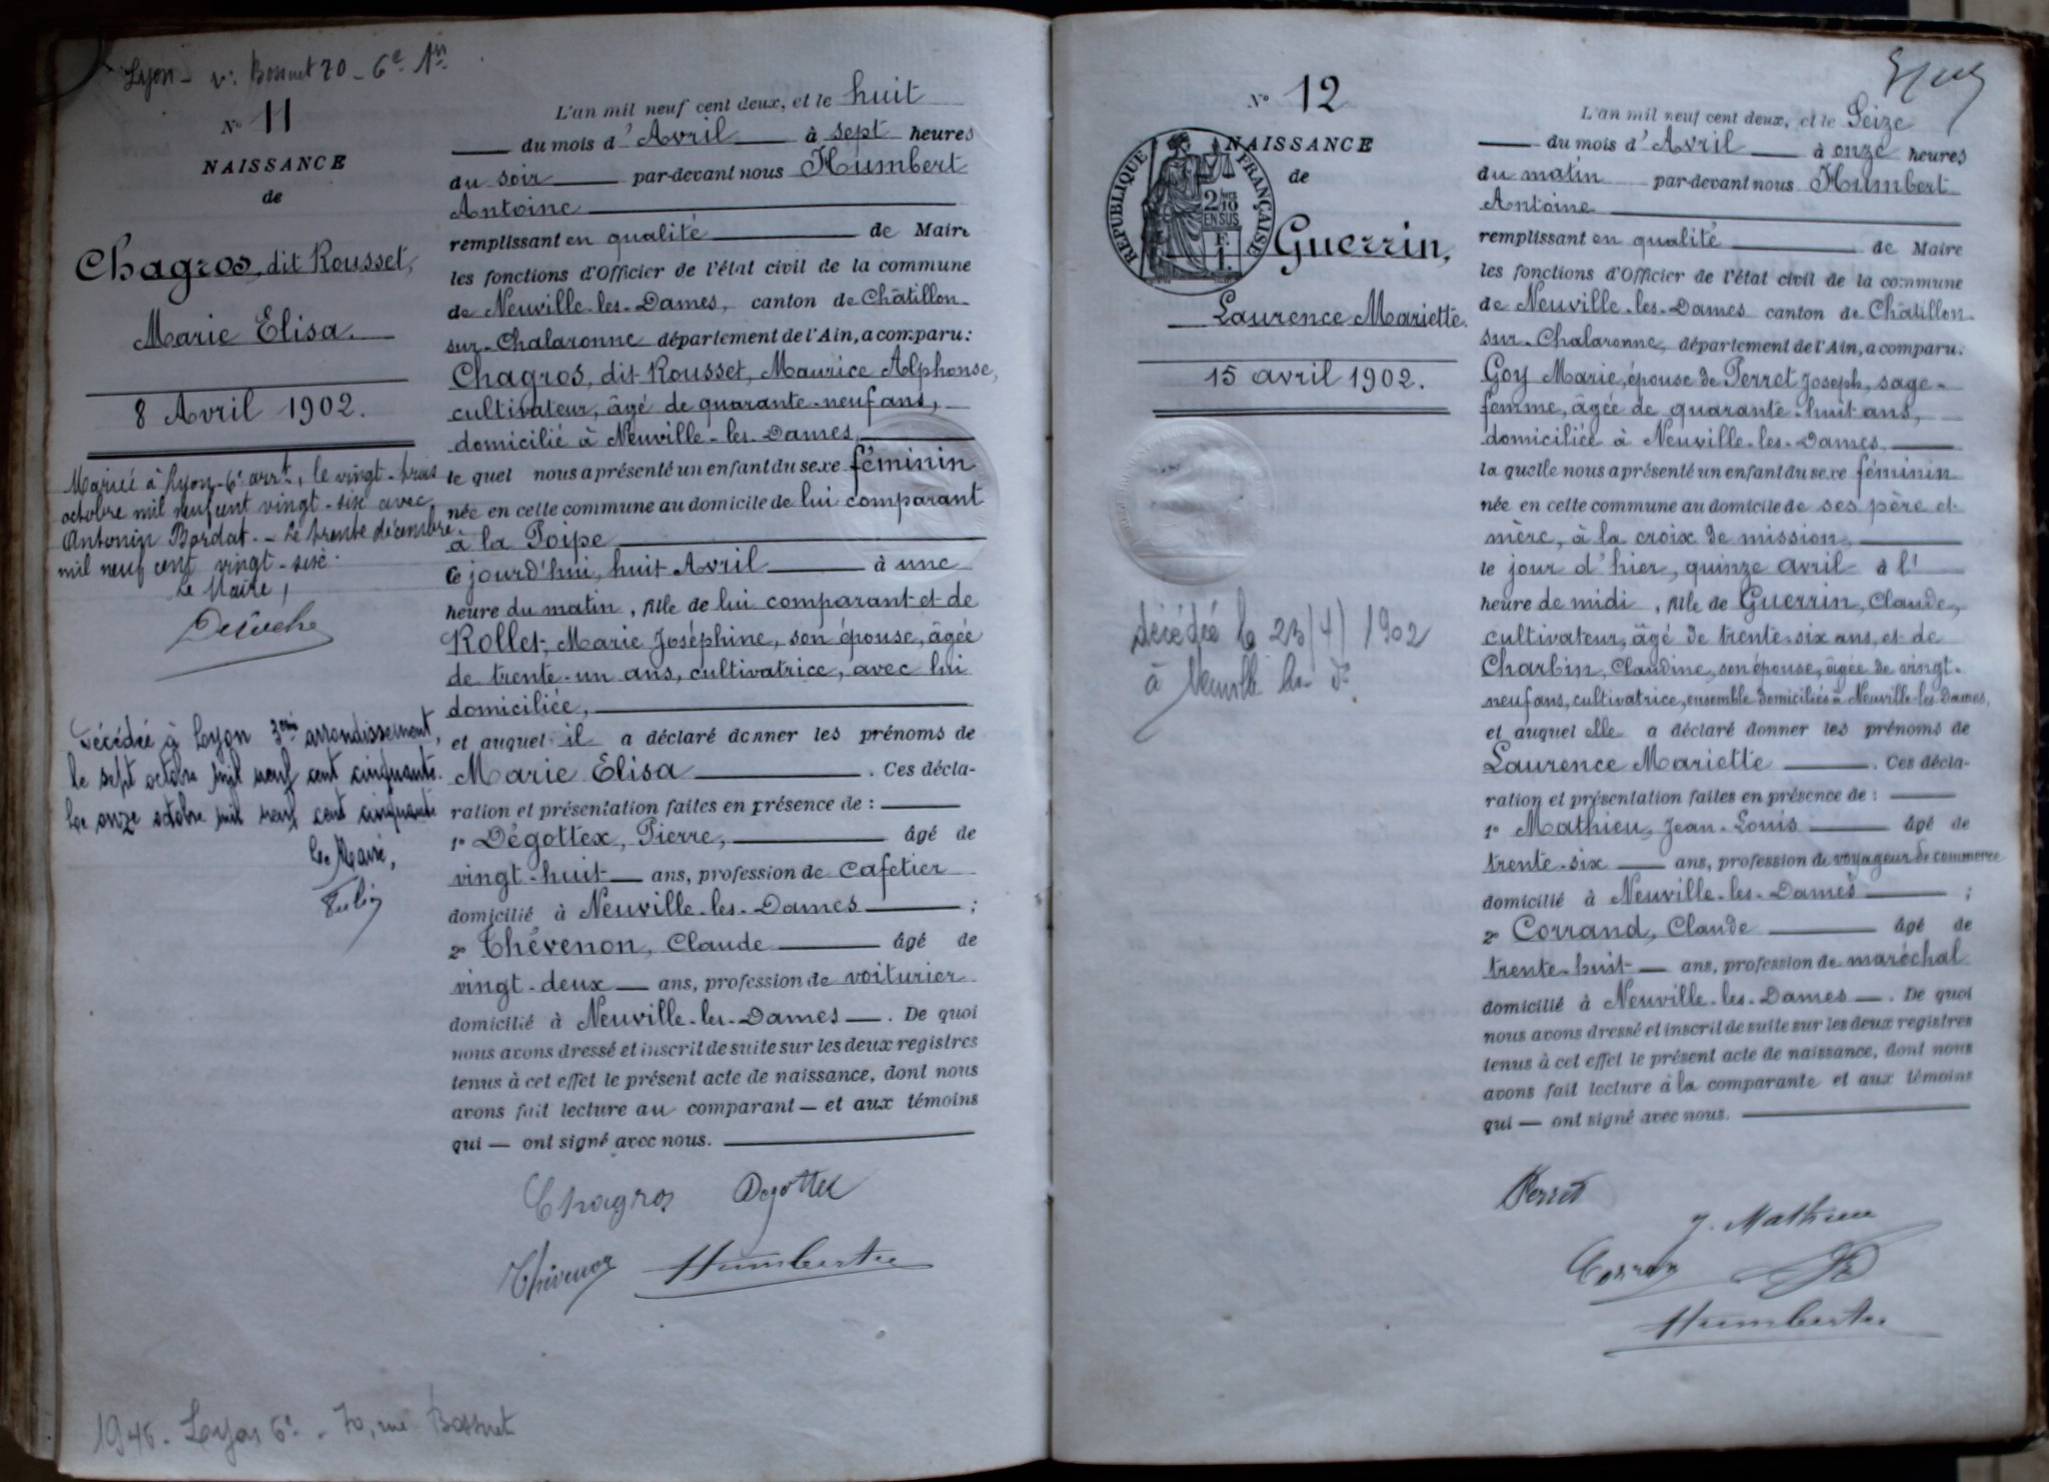 Lyon - r. Bossuet 70 - 6e Arr
N° 11
NAISSANCE
de
Chagros, dit Rousset,
Marie Elisa.
8 Avril 1902.
Mariée à Lyon-6e arrt, le vingt-trois
octobre mil neuf cent vingt-six avec
Antonin Bordat. - Le trente décembre
mil neuf cent vingt-six.
Le Maire,
Décédée à Lyon 3eme arrondissement,
le sept octobre mil neuf cent cinquante.
Le onze octobre mil neuf cent cinquante
Le Maire,
L'an mil neuf cent deux, et le huit
du mois d'Avril à sept heures
du soir par-devant nous Humbert
Antoine
remplissant en qualité de Maire
les fonctions d'Officier de l'état civil de la commune
de Neuville-les-Dames, canton de Châtillon-
sur-Chalaronne département de l'Ain, a comparu:
Chagros, dit Rousset, Maurice Alphonse,
cultivateur, âgé de quarante-neuf ans,
domicilié à Neuville-les-Dames,
le quel nous a présenté un enfant du sexe féminin
née en cette commune au domicile de lui comparant
à la Poipe
Ce jourd'hui, huit Avril à une
heure du matin, fille de lui comparant et de
Rollet, Marie Joséphine, son épouse, âgée
de trente-un ans, cultivatrice, avec lui
domiciliée,
et auquel il a déclaré donner les prénoms de
Marie Elisa. Ces décla-
ration et présentation faites en présence de :
1° Dégottex, Pierre, âgé de
vingt-huit ans, profession de cafetier
domicilié à Neuville-les-Dames ;
2° Thévenon, Claude âgé de
vingt-deux ans, profession de voiturier
domicilié à Neuville-les-Dames. De quoi
nous avons dressé et inscrit de suite sur les deux registres
tenus à cet effet le présent acte de naissance, dont nous
avons fait lecture au comparant et aux témoins
qui ont signé avec nous.
Chagros Degottex
Thévenon Humbert
1946. Lyon 6e. 70, rue Bossuet
N° 12
NAISSANCE
de
RÉPUBLIQUE FRANÇAISE
2/10 EN SUS
F. 1.
Guerrin,
Laurence Mariette.
15 avril 1902.
décédée le 23/4/1902
à Neuville les D.
L'an mil neuf cent deux, et le Seize
du mois d'Avril à onze heures
du matin par-devant nous Humbert
Antoine
remplissant en qualité de Maire
les fonctions d'Officier de l'état civil de la commune
de Neuville-les-Dames canton de Châtillon-
sur-Chalaronne, département de l'Ain, a comparu:
Goy Marie, épouse de Perret Joseph, sage-
femme, âgée de quarante-huit ans,
domiciliée à Neuville-les-Dames,
la quelle nous a présenté un enfant du sexe féminin
née en cette commune au domicile de ses père et
mère, à la croix de mission,
le jour d'hier, quinze avril à l'
heure de midi, fille de Guerrin, Claude,
cultivateur, âgé de trente-six ans, et de
Charbin, Claudine, son épouse, âgée de vingt-
neuf ans, cultivatrice, ensemble domiciliés à Neuville-les-Dames,
et auquel elle a déclaré donner les prénoms de
Laurence Mariette. Ces décla-
ration et présentation faites en présence de :
1° Mathieu, Jean-Louis âgé de
trente-six ans, profession de voyageur de commerce
domicilié à Neuville-les-Dames ;
2° Corrand, Claude âgé de
trente-huit ans, profession de maréchal
domicilié à Neuville-les-Dames. De quoi
nous avons dressé et inscrit de suite sur les deux registres
tenus à cet effet le présent acte de naissance, dont nous
avons fait lecture à la comparante et aux témoins
qui ont signé avec nous.
Perret
J. Mathieu
Humbert